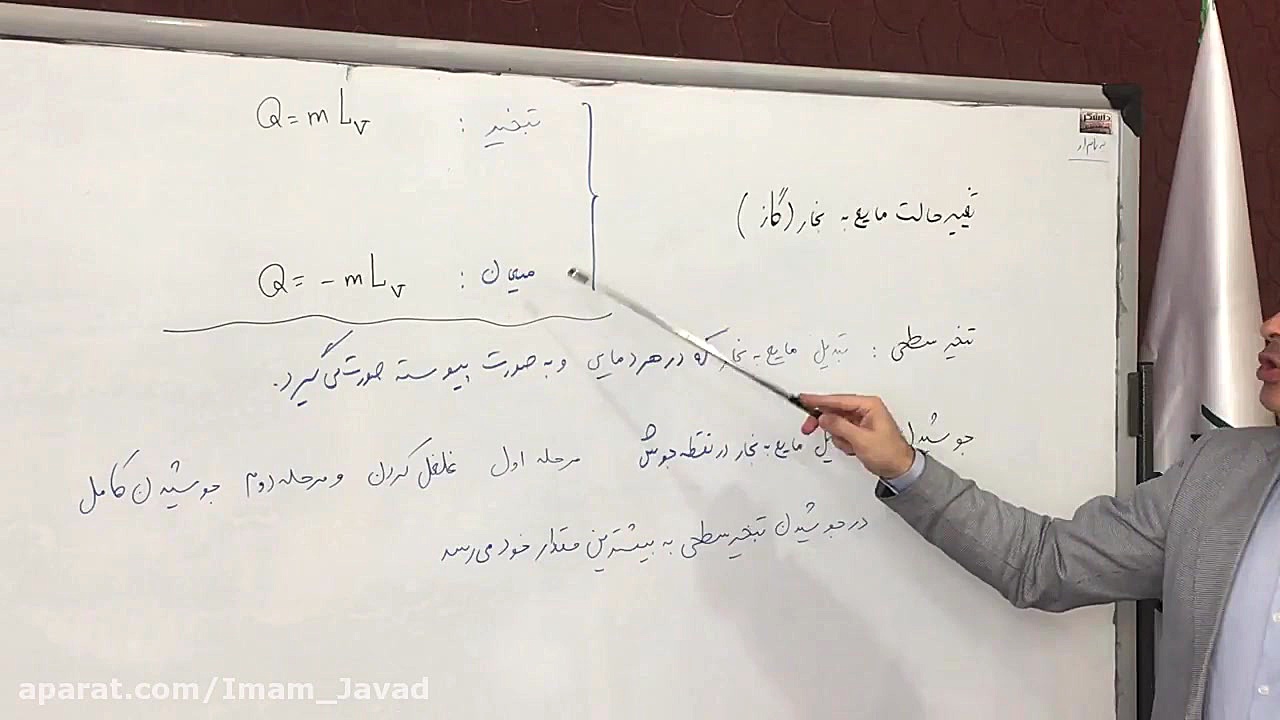 تبخیر : Q = m L_V
تغییر حالت مایع به بخار (گاز)
میعان : Q = - m L_V
تبخیر سطحی : تبدیل مایع به بخار که در هر دمایی و به صورت پیوسته صورت می گیرد.
جوشیدن مایع به بخار در نقطه جوش مرحله اول غلغل کردن و مرحله دوم جوشیدن کامل
در جوشیدن تبخیر سطحی به بیشترین مقدار خود می رسد
aparat.com/Imam_Javad